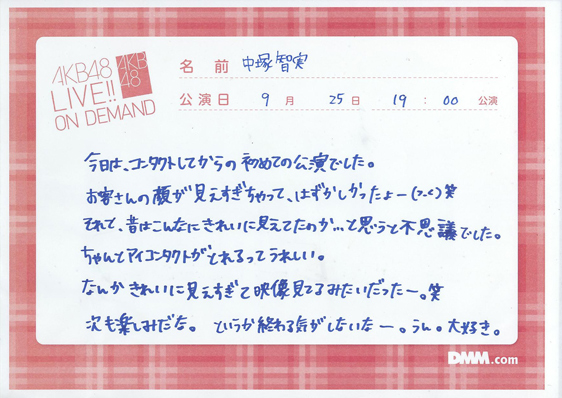 AKB48
LIVE!!
ON DEMAND
AKB
48
名前 中塚智実
公演日 9月 25日 19:00 公演
今日は、コンタクトしてからの初めての公演でした。
お客さんの顔が見えすぎちゃって、はずかしかったよー(>_<)笑
それで、昔はこんなにきれいに見えてたのか…と思うと不思議でした。
ちゃんとアイコンタクトがとれるってうれしい。
なんかきれいに見えすぎて映像見てるみたいだったー。笑
次も楽しみだな。というか終わる気がしないなー。うん。大好き。
DMM.com